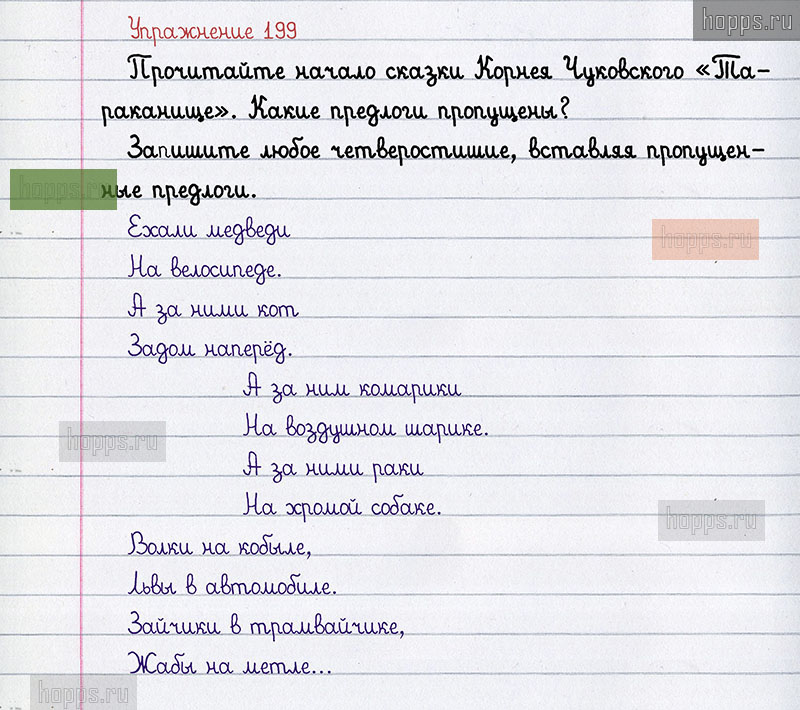 Упражнение 199
hopps.ru
Прочитайте начало сказки Корнея Чуковского «Та-
раканище». Какие предлоги пропущены?
Запишите любое четверостишие, вставляя пропущен-
ные предлоги.
hopps.ru
Ехали медведи
hopps.ru
На велосипеде.
А за ними кот
Задом наперёд.
А за ним комарики
На воздушном шарике.
hopps.ru
А за ними раки
На хромой собаке.
hopps.ru
Волки на кобыле,
Львы в автомобиле.
Зайчики в трамвайчике,
Жабы на метле...
hopps.ru